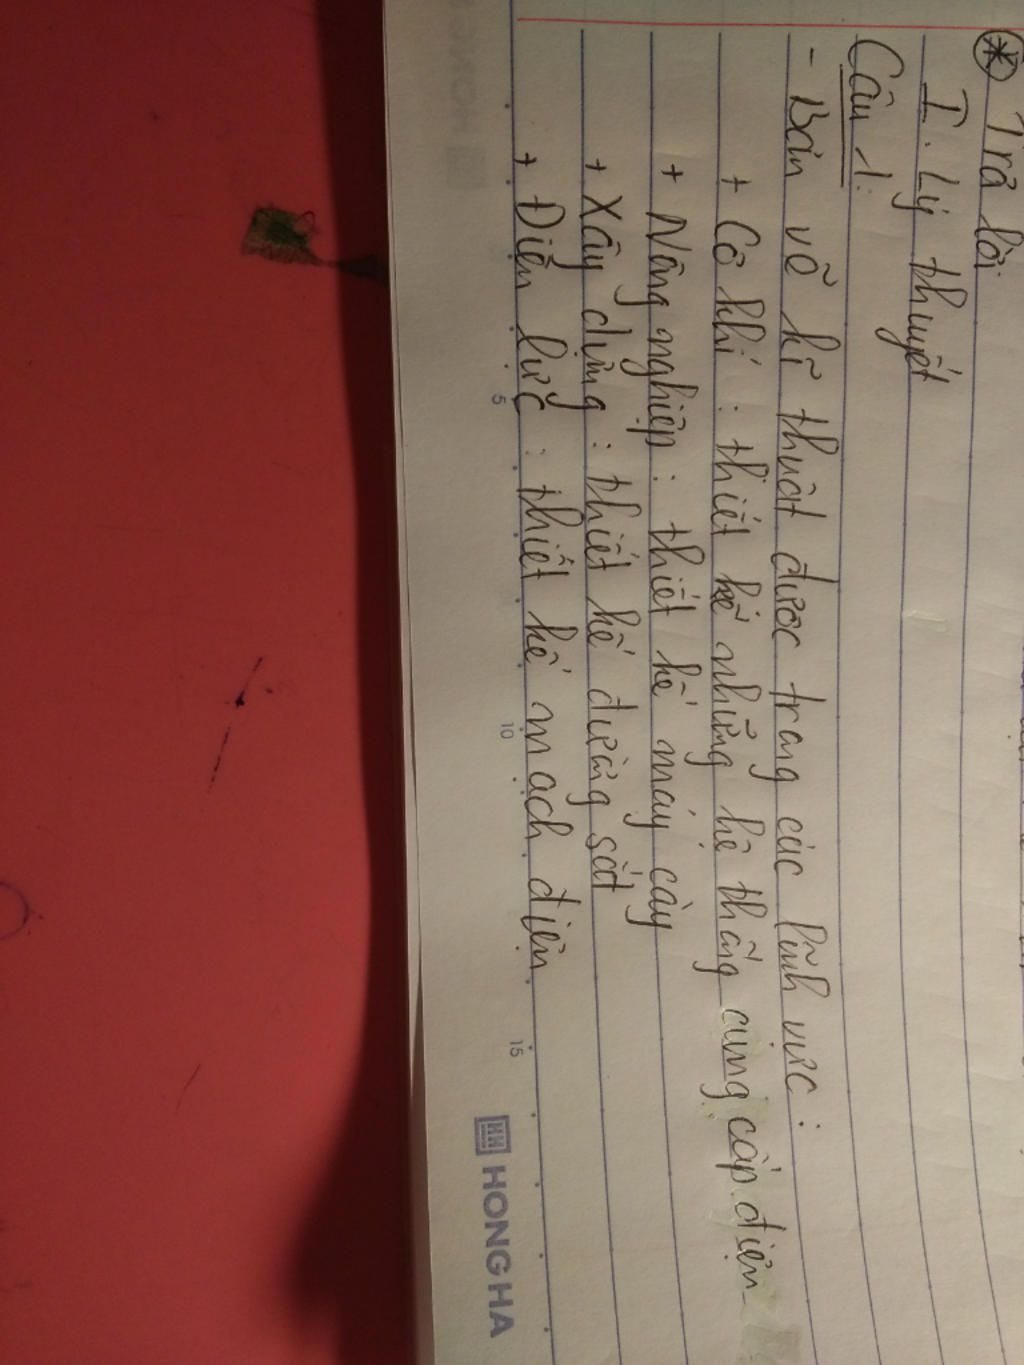 * Trả lời
I. Lý thuyết
Câu 1:
- Bản vẽ kĩ thuật được trong các lĩnh vực:
+ Cơ khí: thiết kế những hệ thống cung cấp điện
+ Nông nghiệp: thiết kế máy cày
+ Xây dựng: thiết kế đường sắt
+ Điện lực: thiết kế mạch điện
5 10 15
HONG HA